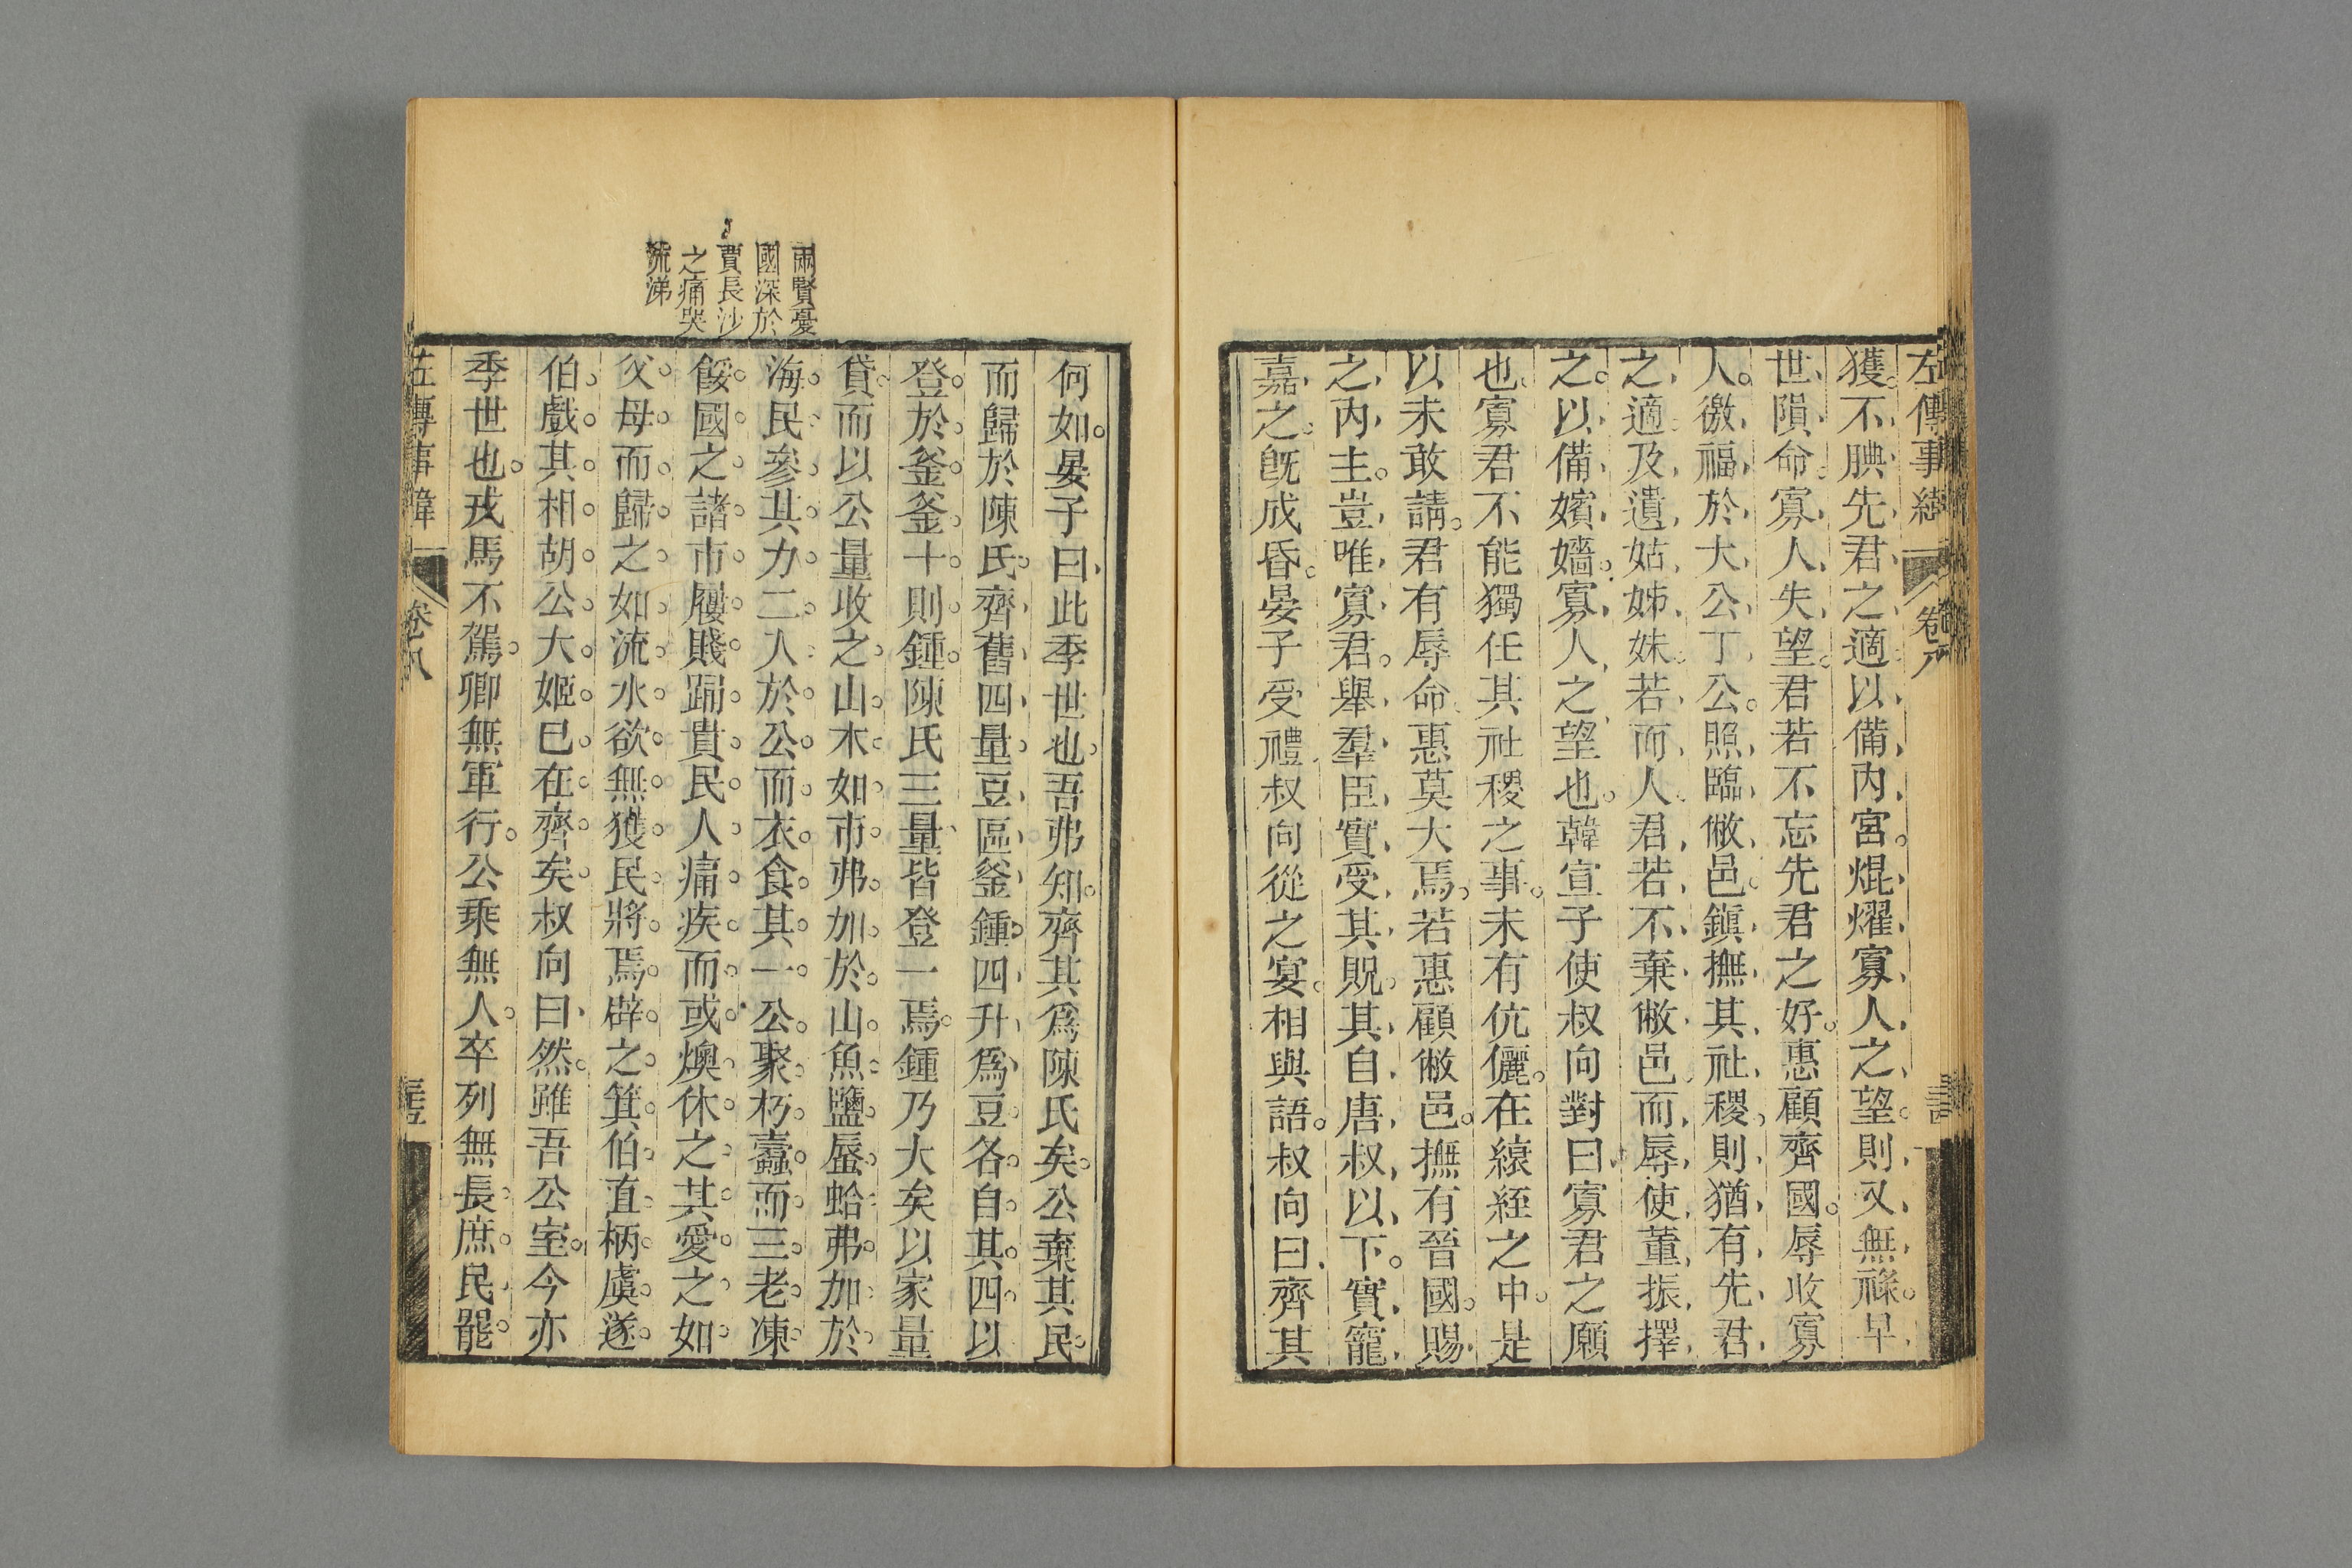 左傳事緯
卷八
獲不腆先君之適以備內宮焜燿寡人之望則又無祿早
世隕命寡人失望君若不忘先君之好惠顧齊國辱收寡
人徼福於大公丁公照臨敝邑鎭撫其社稷則猶有先君
之適及遺姑姊妹若而人君若不棄敝邑而辱使董振擇
之以備嬪嬙寡人之望也韓宣子使叔向對曰寡君之願
也寡君不能獨任其社稷之事未有伉儷在縗絰之中是
以未敢請君有辱命惠莫大焉若惠顧敝邑撫有晉國賜
之內主豈唯寡君舉羣臣實受其貺其自唐叔以下實寵
嘉之旣成昏晏子受禮叔向從之宴相與語叔向曰齊其
何如晏子曰此季世也吾弗知齊其爲陳氏矣公棄其民
而歸於陳氏齊舊四量豆區釜鍾四升爲豆各自其四以
登於釜釜十則鍾陳氏三量皆登一焉鍾乃大矣以家量
貸而以公量收之山木如市弗加於山魚鹽蜃蛤弗加於
海民參其力二入於公而衣食其一公聚朽蠹而三老凍
餒國之諸市屨賤踊貴民人痛疾而或燠休之其愛之如
父母而歸之如流水欲無獲民將焉辟之箕伯直柄虞遂
伯戲其相胡公大姬已在齊矣叔向曰然雖吾公室今亦
季世也戎馬不駕卿無軍行公乘無人卒列無長庶民罷
兩賢憂
國深於
賈長沙
之痛哭
流涕
左傳事緯
卷八